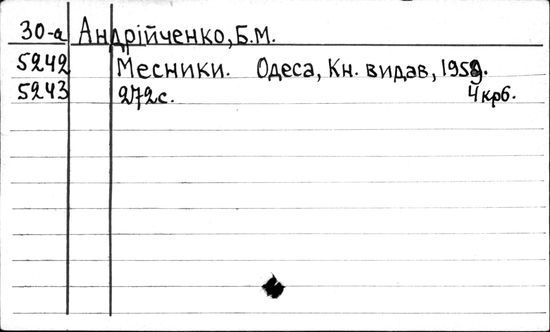 30-а Андрійченко, Б.М.
5242 Месники. Одеса, Кн. видав, 1959.
5243 272с. 4крб.